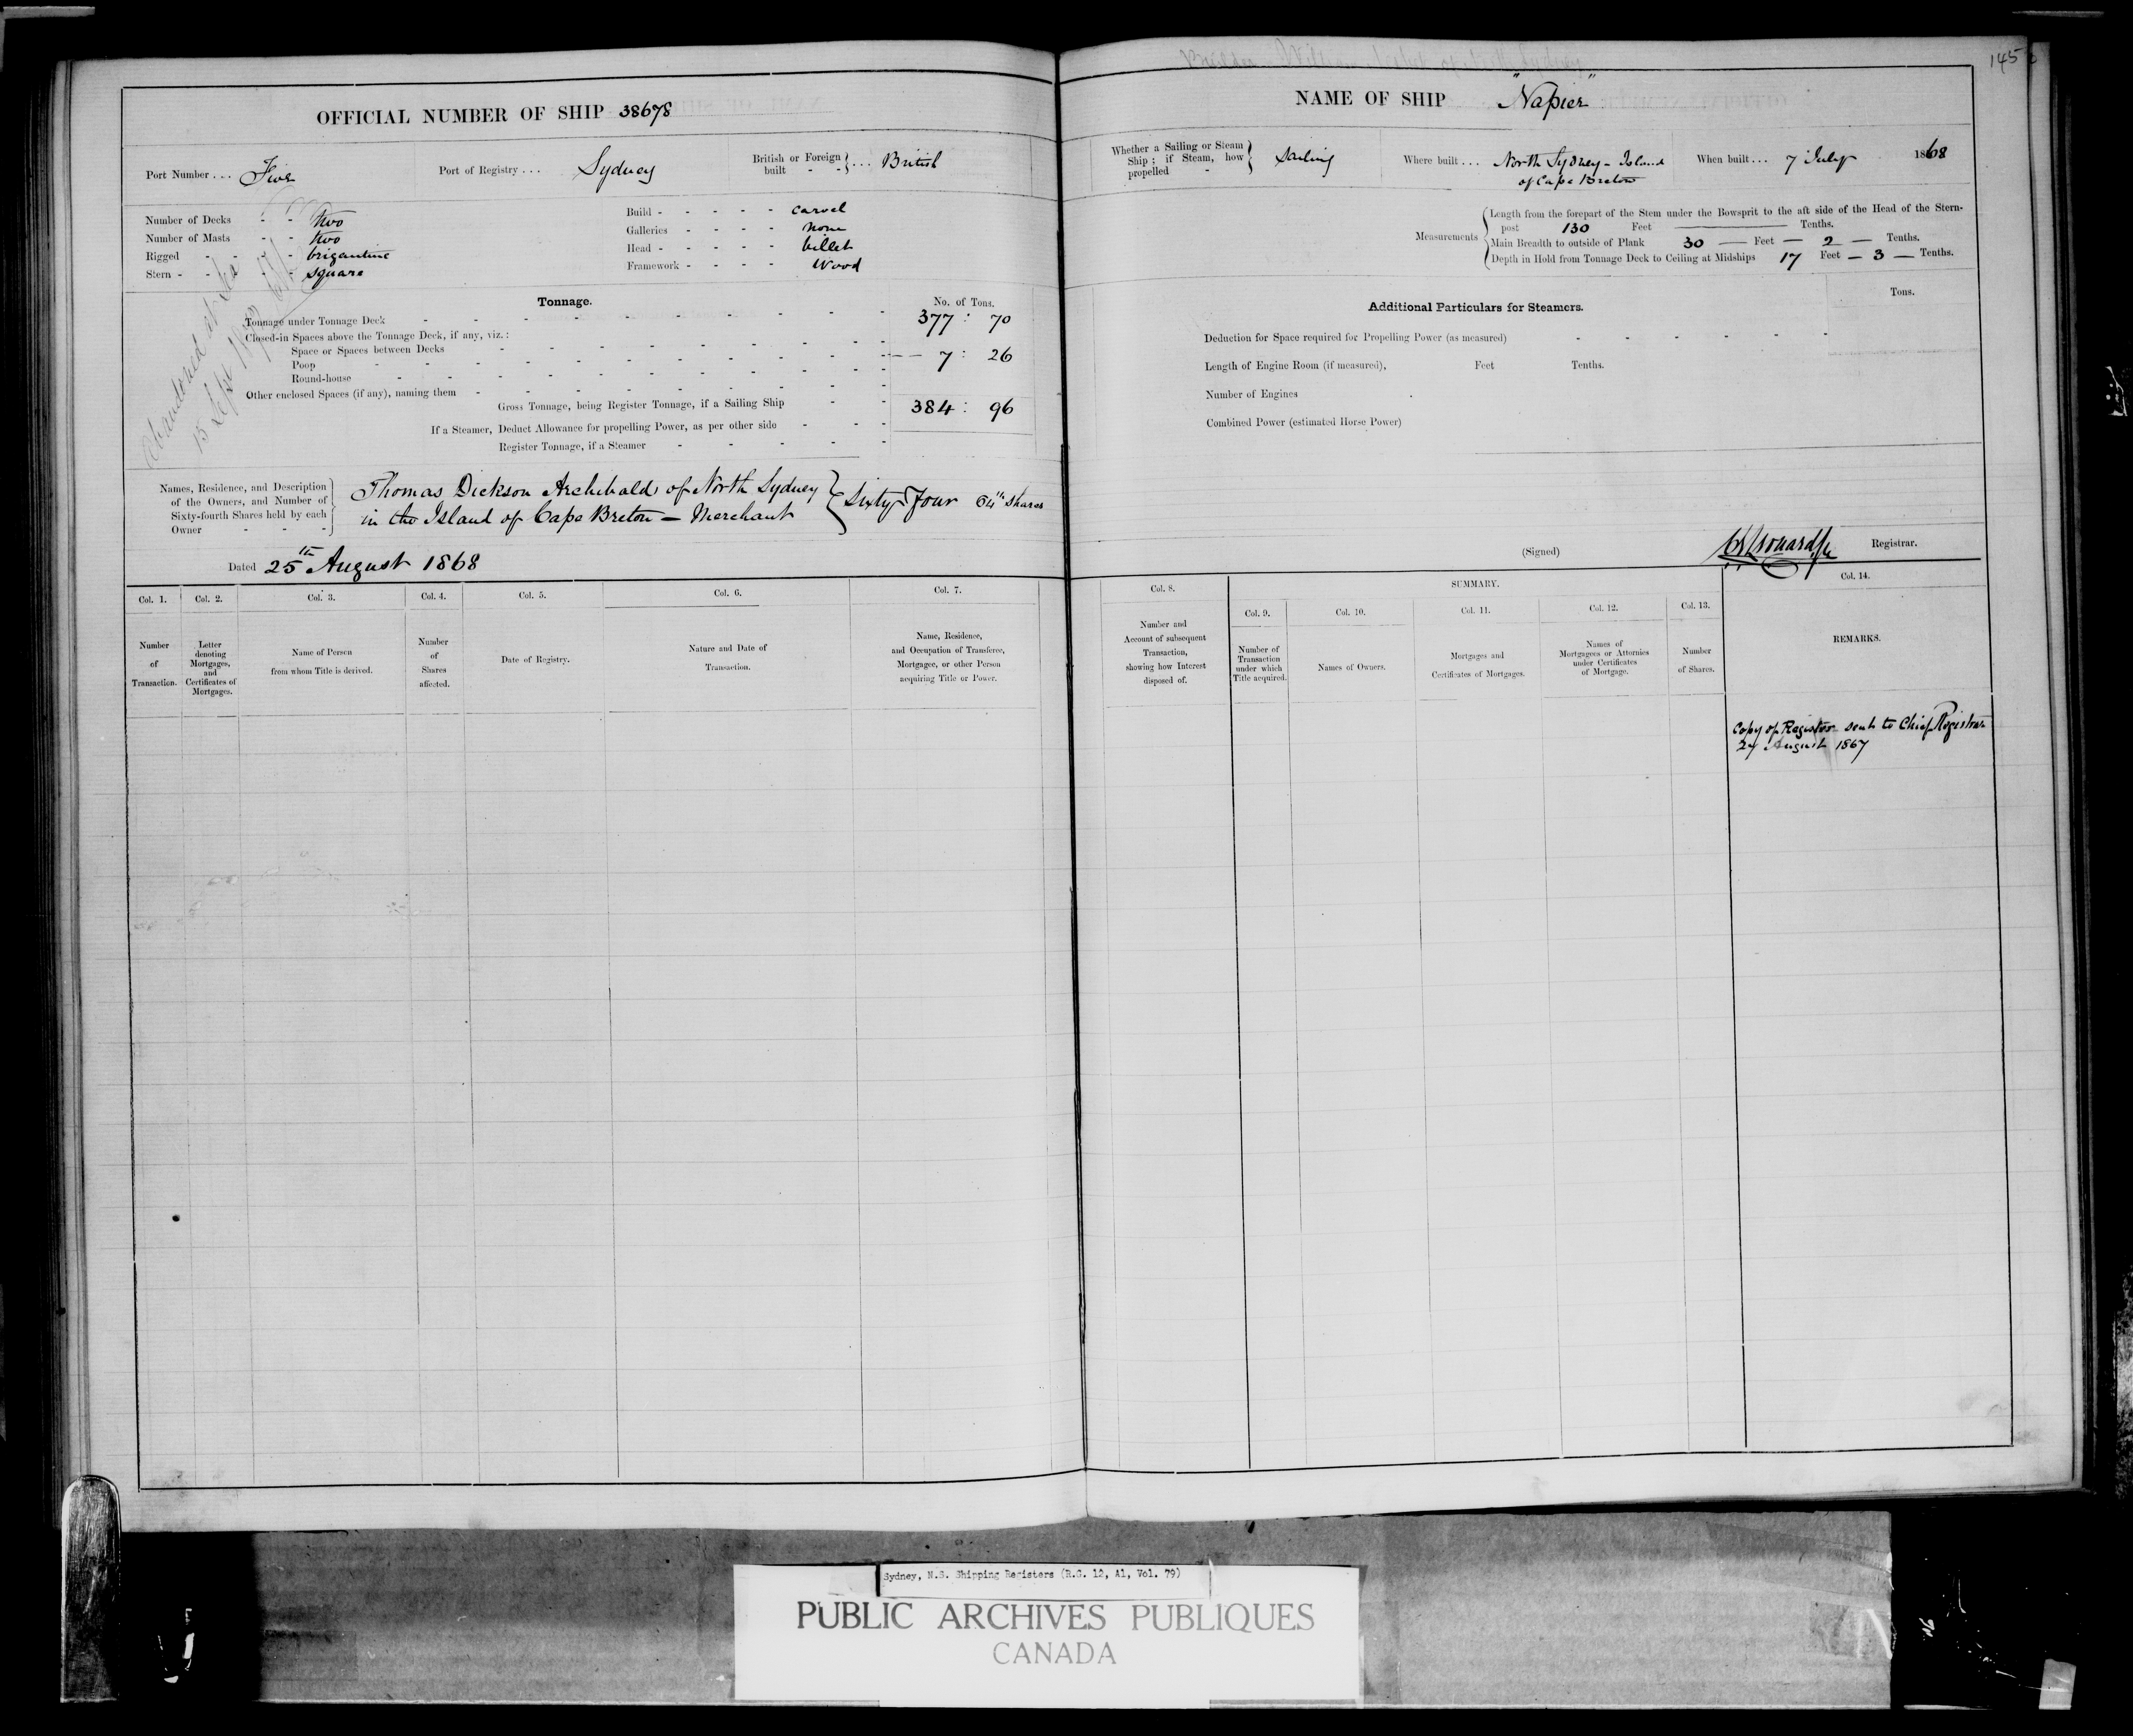 145
OFFICIAL NUMBER OF SHIP 38678
NAME OF SHIP "Napier"
Port Number ... Five
Port of Registry ... Sydney
British or Foreign built - - } ... British
Whether a Sailing or Steam Ship; if Steam, how propelled - } Sailing
Where built ... North Sydney - Island
of Cape Breton
When built ... 7 July 1868
Number of Decks - - two
Number of Masts - - two
Rigged - - - brigantine
Stern - - - square
Build - - - - - carvel
Galleries - - - - none
Head - - - - - billet
Framework - - - - Wood
Measurements
Length from the forepart of the Stem under the Bowsprit to the aft side of the Head of the Stern-
post 130 Feet ——— Tenths.
Main Breadth to outside of Plank 30 — Feet — 2 — Tenths.
Depth in Hold from Tonnage Deck to Ceiling at Midships 17 Feet — 3 — Tenths.
Abandoned at Sea
Tonnage.
No. of Tons.
Tonnage under Tonnage Deck 377 : 70
Closed-in Spaces above the Tonnage Deck, if any, viz.:
Space or Spaces between Decks
Poop 7 : 26
Round-house
Other enclosed Spaces (if any), naming them
Gross Tonnage, being Register Tonnage, if a Sailing Ship 384 : 96
If a Steamer, Deduct Allowance for propelling Power, as per other side
Register Tonnage, if a Steamer
Additional Particulars for Steamers.
Tons.
Deduction for Space required for Propelling Power (as measured)
Length of Engine Room (if measured), Feet Tenths.
Number of Engines
Combined Power (estimated Horse Power)
Names, Residence, and Description
of the Owners, and Number of
Sixty-fourth Shares held by each
Owner - - -
Thomas Dickson Archibald of North Sydney
in the Island of Cape Breton - Merchant
Sixty Four 64th Shares
Dated 25th August 1868
(Signed) Registrar.
Col. 1.
Number
of
Transaction.
Col. 2.
Letter
denoting
Mortgages,
and
Certificates of
Mortgages.
Col. 3.
Name of Person
from whom Title is derived.
Col. 4.
Number
of
Shares
affected.
Col. 5.
Date of Registry.
Col. 6.
Nature and Date of
Transaction.
Col. 7.
Name, Residence,
and Occupation of Transferee,
Mortgagee, or other Person
acquiring Title or Power.
Col. 8.
Number and
Account of subsequent
Transaction,
showing how Interest
disposed of.
SUMMARY.
Col. 9.
Number of
Transaction
under which
Title acquired.
Col. 10.
Names of Owners.
Col. 11.
Mortgages and
Certificates of Mortgages.
Col. 12.
Names of
Mortgagees or Attornies
under Certificates
of Mortgage.
Col. 13.
Number
of Shares.
Col. 14.
REMARKS.
Copy of Register sent to Chief Registrar
27 August 1867
Sydney, N.S. Shipping Registers (R.G. 12, A1, Vol. 79)
PUBLIC ARCHIVES PUBLIQUES
CANADA